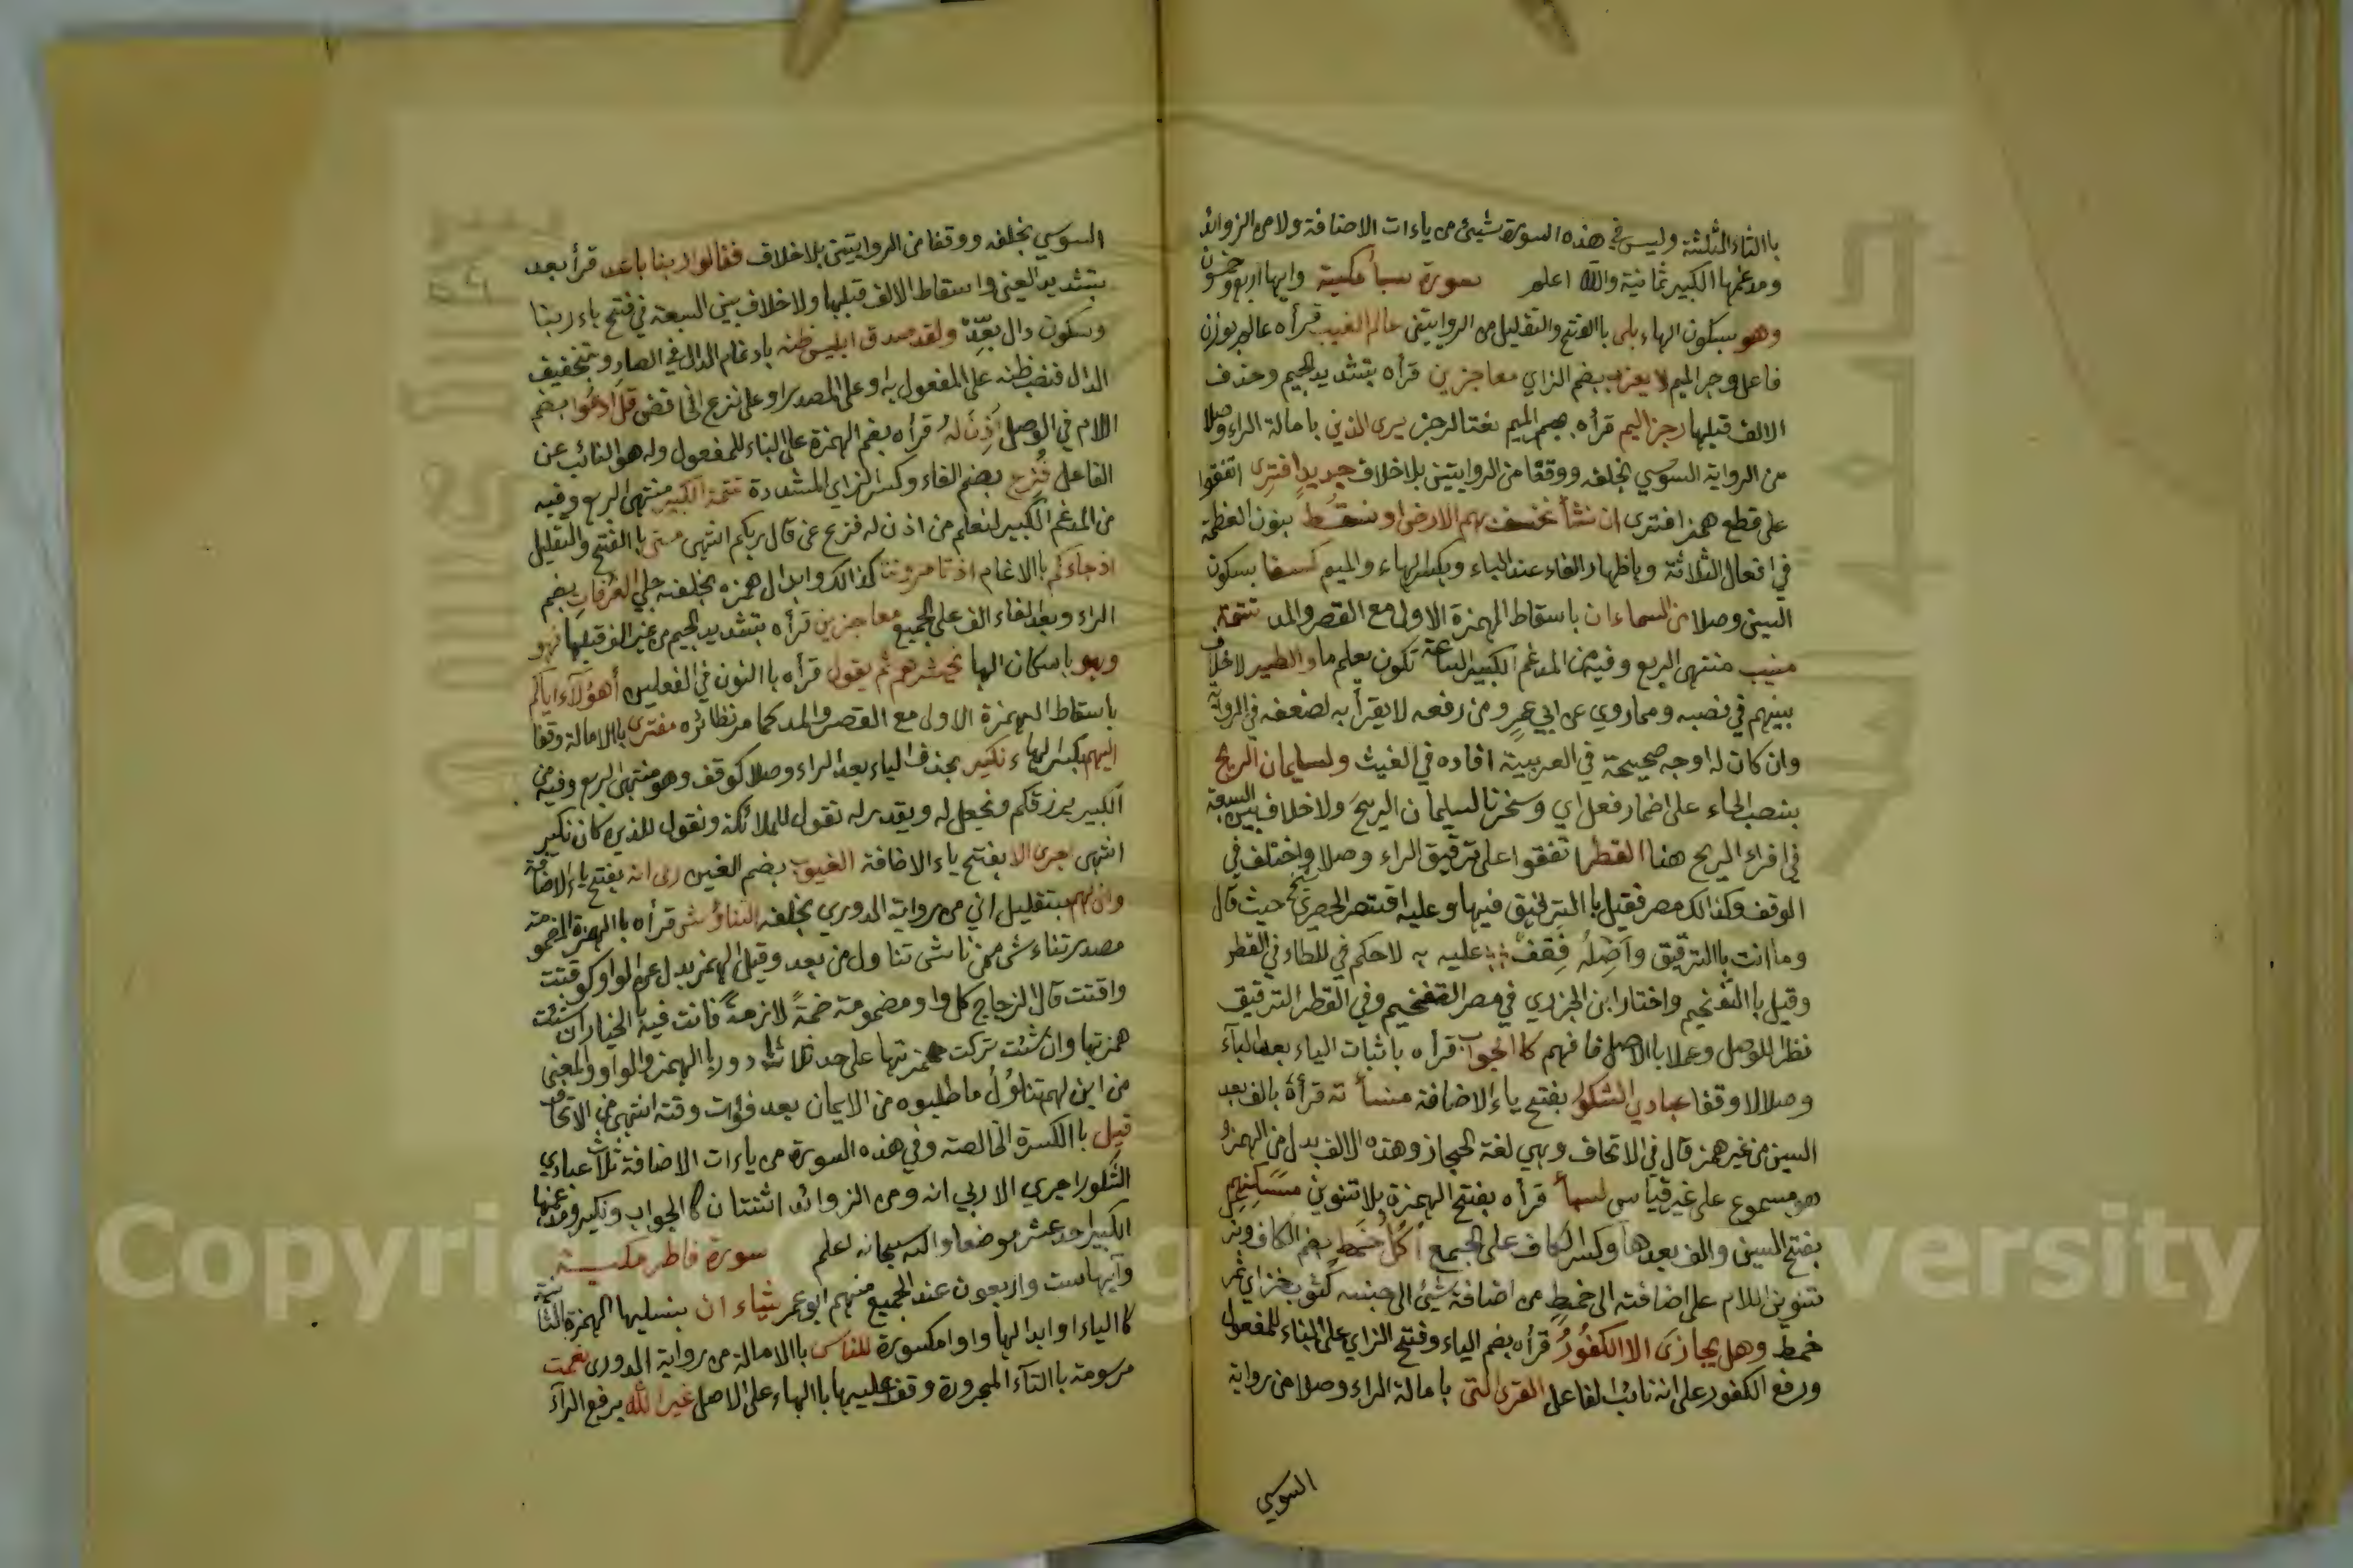 باالثاء المثلثة وليس في هذه السورة شيئ من ياءات الاضافة ولا من الزوائد
ومدغمها الكبير ثمانية والله اعلم سورة سبأ مكية وايها اربع وخمسون
وهو بسكون الهاء بلى باالفتح والتقليل من الروايتين عالم الغيب قرأه عالم بوزن
فاعل وجر الميم لا يعزب بضم الزاي معاجزين قرأه بتشديد الجيم وحذف
الالف قبلها رجز اليم قرأه بجر الميم نعتا لرجز يرى الذين بامالة الراء وصلا
من الرواية السوسي بخلفه ووقفا من الروايتين بلا خلاف جديد افترى اتفقوا
على قطع همز افترى ان نشأ نخسف بهم الارض او نسقط بنون العظمة
في افعال الثلاثة وباظهار الفاء عند الباء وبكسر الهاء والميم كسفا بسكون
السين وصلا من السماء ان باسقاط الهمزة الاولى مع القصر والمد تتمة
منيب منتهى الربع وفيه من المدغم الكبير الساعة تكون يعلم ما والطير لاخلاف
بينهم في نصبه وماروي عن ابي عمرو من رفعه لا يقرأ به لضعفه في الرواية
وان كان له اوجه صحيحة في العربية افاده في الغيث ولسليمان الريح
بنصب الحاء على اضمار فعل اي وسخرنا لسليمان الريح ولاخلاف بين السبعة
في افراد الريح هنا القطر اتفقوا على ترقيق الراء وصلا واختلف في
الوقف وكذالك مصر فقيل باالترقيق فيها وعليه اقتصر الحصري حيث قال
وما انت باالترقيق واصله فقف عليه به لاحكم في للطاء في القطر
وقيل باالتفخيم واختار ابن الجزري في مصر التفخيم وفي القطر الترقيق
نظرا للوصل وعملا باالاصل فافهم كاالجواب قرأه باثبات الياء بعد الباء
وصلا لا وقفا عبادي الشكور بفتح ياء الاضافة منسأته قرأه بالف بعد
السين من غير همز قال في الاتحاف وهي لغة الحجاز وهذه الالف بدل من الهمزة
هو مسموع على غير قياس لسبأ قرأه بفتح الهمزة بلا تنوين مسكنهم
بفتح السين والف بعدها وكسر الكاف على الجمع اكل خمط بضم الكاف وترك
تنوين اللام على اضافته الى خمط من اضافة شيئ الى جنسه كثوب خز اي ثمر
خمط وهل يجازى الا الكفور قرأه بضم الياء وفتح الزاي على البناء للمفعول
ورفع الكفور على انه نائب الفاعل القرى التى بامالة الراء وصلا من رواية
السوسي
السوسي بخلفه ووقفا من الروايتين بلاخلاف فقالوا ربنا باعد قرأ بعد
بتشديد العين واسقاط الالف قبلها ولاخلاف بين السبعة في فتح باء ربنا
وسكون دال بعد ولقد صدق ابليس ظنه بادغام الدال في الصاد وبتخفيف
الدال فنصب ظنه على المفعول به او على المصدر او على نزع الخافض قل ادعوا بضم
اللام في الوصل اذن له قرأه بضم الهمزة على البناء للمفعول وله هو النائب عن
الفاعل فزع بضم الفاء وكسر الزاي المشددة تتمة الكبير منتهى الربع وفيه
من المدغم الكبير لنعلم من اذن له فزع عن قال ربكم انتهى متى باالفتح والتقليل
اذ جاءكم باالادغام اذ تأمروننا كذالك وابدال همزه بخلفه جلي الغرفات بضم
الراء وبعد الفاء الف على الجميع معاجزين قرأه بتشديد الجيم من غير الف قبلها فهو
وهو باسكان الها نحشرهم ثم يقول قرأه باالنون في الفعلين أهؤلآء اياكم
باسقاط الهمزة الاولى مع القصر والمد كما مر نظائره مفترى باالامالة وقفا
اليهم بكسر الهاء نكير بحذف الياء بعد الراء وصلا كوقف وهو منتهى الربع وفيه من
الكبير يرزقكم ونجعل له ويقدر له نقول للملائكة ونقول للذين كان نكير
انتهى اجرى الا بفتح ياء الاضافة الغيوب بضم الغين ربى انه بفتح ياء الاضافة
وانى لهم بتقليل انى من رواية الدوري بخلفه التناؤش قرأه باالهمزة المضمومة
مصدر تناءش من ناش تناول من بعد وقيل الهمز بدل عن الواو كوقتت
واقتت قال الزجاج كل واو مضمومة ضمة لازمة فانت فيه باالخيار ان شئت
همزتها وان شئت تركت همزتها على حد ثلاث ادور باالهمز والواو والمعنى
من اين لهم تناول ما طلبوه من الايمان بعد فوات وقته انتهى من الاتحاف
قيل باالكسرة الخالصة وفي هذه السورة من ياءات الاضافة ثلاث عبادي
الشكور اجري الا ربي انه ومن الزوائد اثنتان كاالجواب ونكير ومدغمها
الكبير احد عشر موضعا والله سبحانه اعلم سورة فاطر مكية
وآيها ست واربعون عند الجميع منهم ابو عمر يشاء ان بتسهيل الهمزة الثانية
كاالياء او ابدالها واوا مكسورة للناس باالامالة من رواية الدورى نعمت
مرسومة باالتآء المجرورة وقف عليها باالهاء على الاصل غير الله برفع الرآء
Copyright © King Saud University